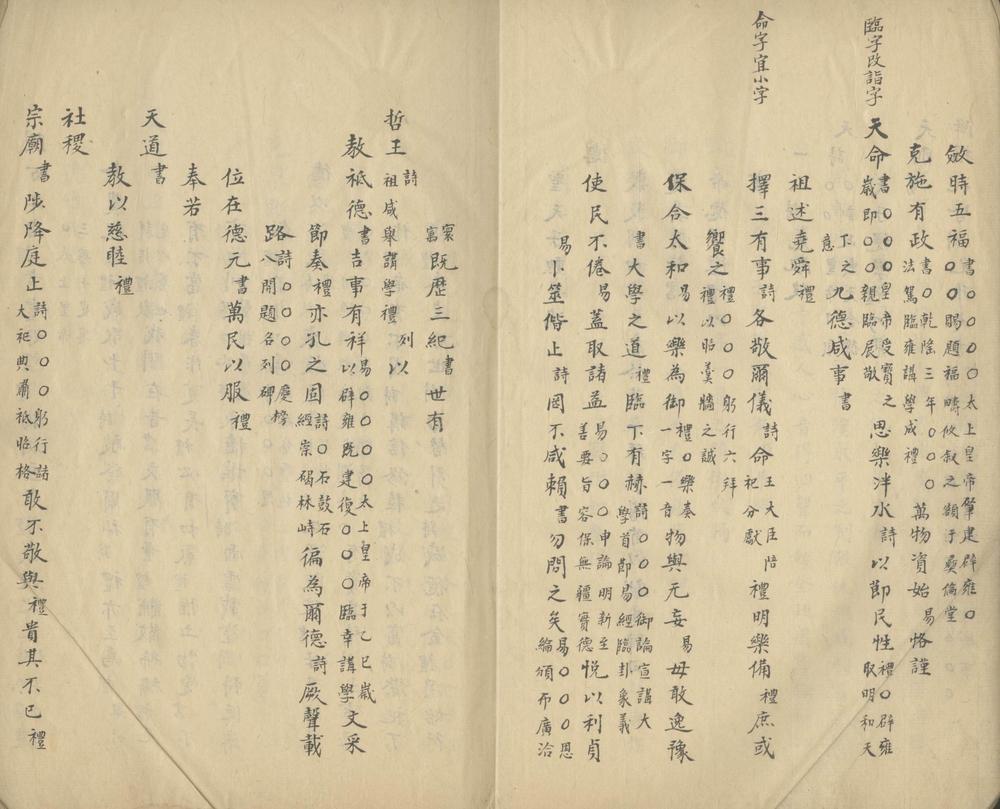 斂時五福書〇〇〇〇太上皇帝肇建辟雍〇〇〇賜題福疇攸敘之額于彝倫堂
克施有政書〇乾隆三年〇〇〇法駕臨雍講學成禮萬物資始易恪謹
臨字改詣字
天命書〇〇〇皇帝受寶之歲即〇〇親臨展敬思樂泮水詩以節民性禮〇辟雍取明和天
下之意九德咸事書
祖述堯舜禮
命字宜小字
擇三有事詩各敬爾儀詩命王大臣陪祀分獻禮明樂備禮庶或
饗之禮〇〇〇躬行六拜禮以昭羹牆之誠
保合太和易以樂為御禮〇樂奏一字一音物與无妄易毋敢逸豫
書大學之道禮臨下有赫詩〇〇〇御論宣講大學首節易經臨卦象義
使民不倦易蓋取諸益易〇〇〇申論明新至善要旨容保無疆實德悅以利貞
易卜筮偕止詩罔不咸賴書勿問之矣易〇〇〇恩綸頒布廣洽
寰寓既歷三紀書世有
哲王詩祖咸舉講學禮列以
教祗德書吉事有祥易〇〇〇〇太上皇帝于乙巳歲以辟雍既建復〇〇〇臨幸講學文采
節奏禮亦孔之固詩〇石鼓石經崇碣林峙徧為爾德詩厥聲載
路詩〇〇〇慶榜八開題名列碑
位在德元書萬民以服禮
奉若
天道書
教以慈睦禮
社稷
宗廟書陟降庭止詩〇〇〇躬行諸大祀典肅祗昭格敢不敬與禮貴其不已禮